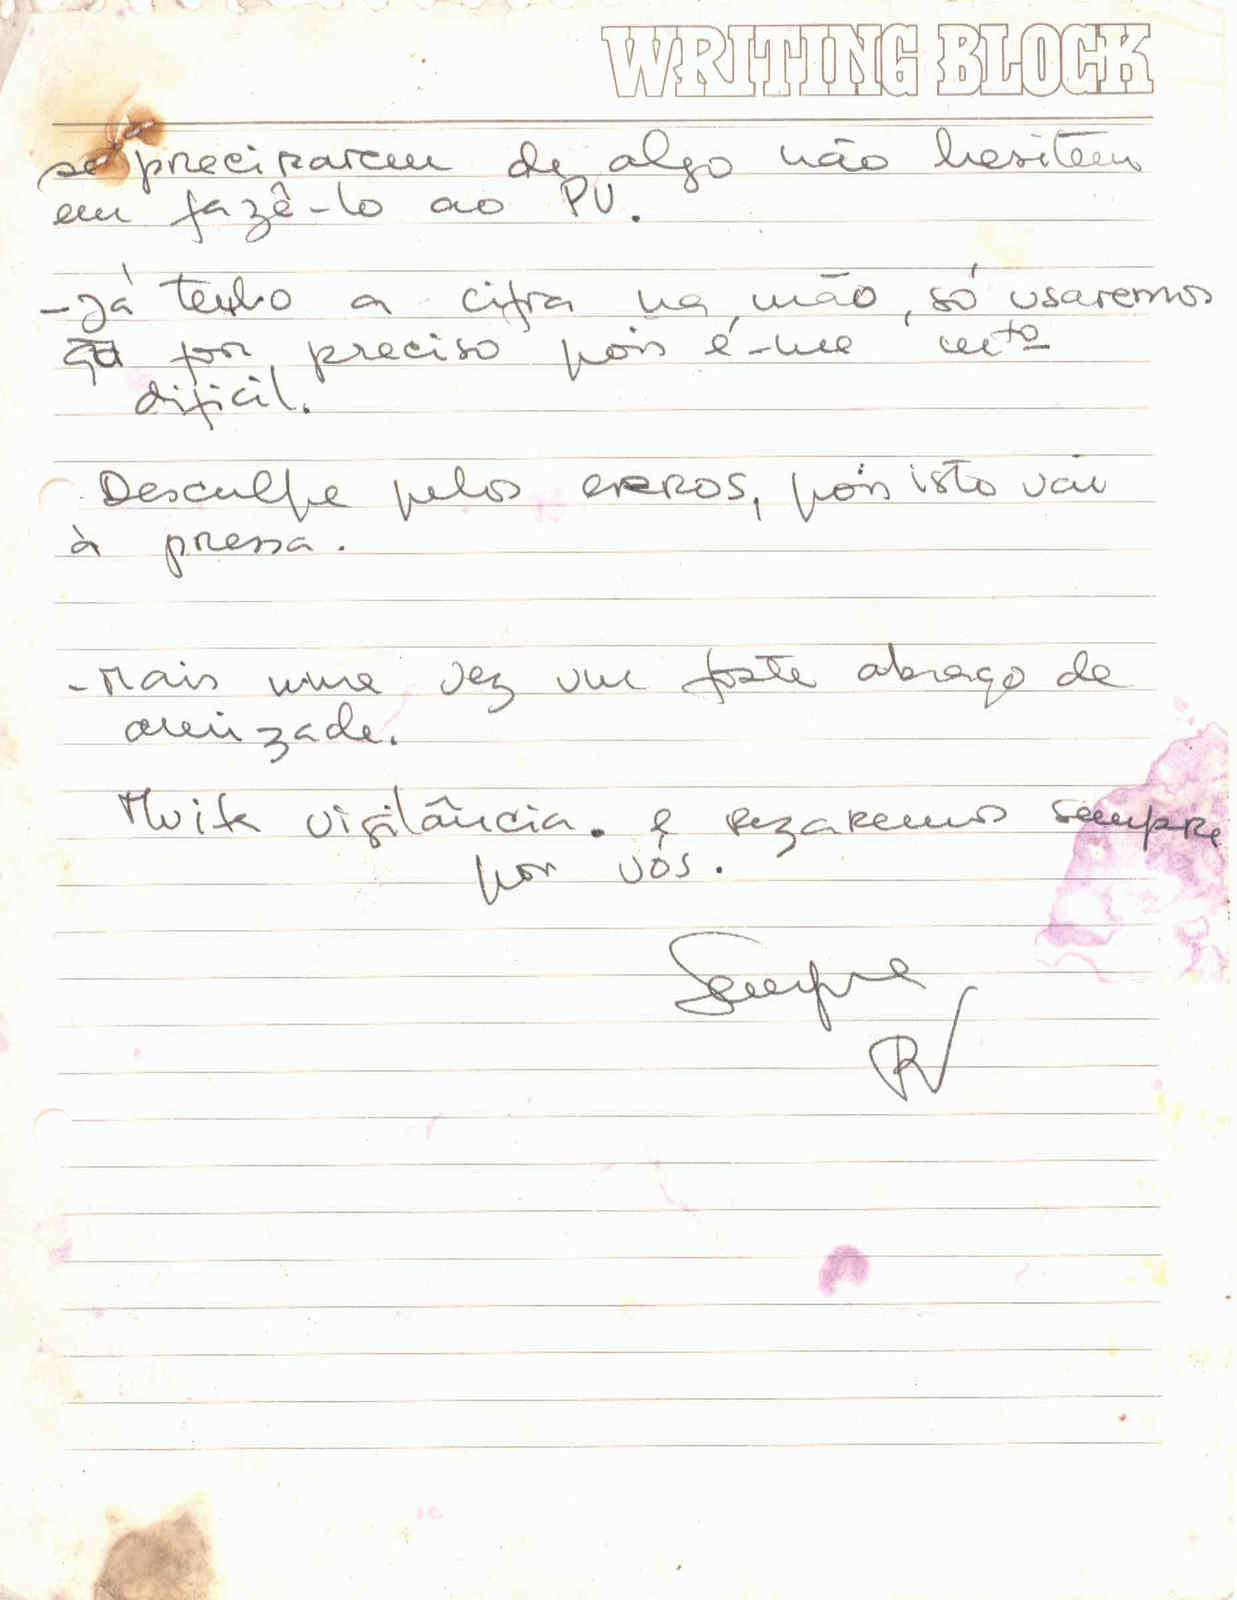 WRITING BLOCK
se precisarem de algo não hesitem
em fazê-lo ao PU.
- Já tenho a cifra na mão, só usaremos
for preciso pois é-me mto
dificil.
Desculpe pelos erros, pois isto vai
à pressa.
- Mais uma vez um forte abraço de
amizade.
Muita vigilância. e rezaremos sempre
por vós.
Sempre
RV